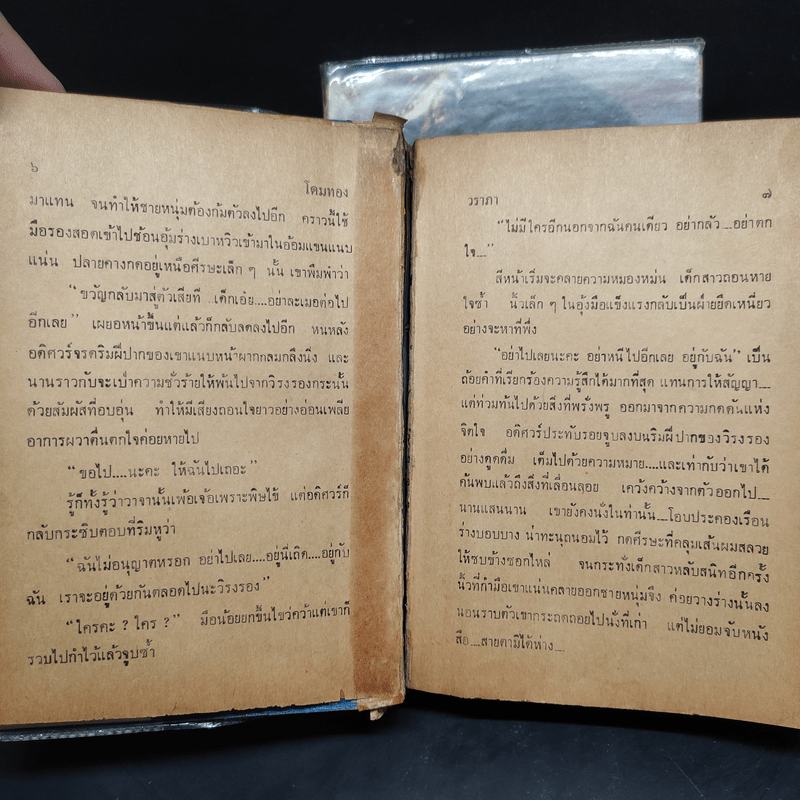 ๖
โดมทอง
มาแทน จนทำให้ชายหนุ่มต้องก้มตัวลงไปอีก คราวนี้ใช้
มือรองสอดเข้าไปช้อนอุ้มร่างเบาหวิวเข้ามาในอ้อมแขนแนบ
แน่น ปลายคางกดอยู่เหนือศีรษะเล็ก ๆ นั้น เขาพึมพำว่า
“ขวัญกลับมาสู่ตัวเสียที ...เด็กเอ๋ย....อย่าละเมอต่อไป
อีกเลย” เผยอหน้าขึ้นแต่แล้วก็กลับลดลงไปอีก หนหลัง
อดิศวร์จรดริมฝีปากของเขาแนบหน้าผากกลมกลึงนิ่ง และ
นานราวกับจะเป่าความชั่วร้ายให้พ้นไปจากวิรงรองกระนั้น
ด้วยสัมผัสที่อบอุ่น ทำให้มีเสียงถอนใจยาวอย่างอ่อนเพลีย
อาการผวาตื่นตกใจค่อยหายไป
“ขอไป....นะคะ ให้ฉันไปเถอะ”
รู้ก็ทั้งรู้ว่าวาจานั้นเพ้อเจ้อเพราะพิษไข้ แต่อดิศวร์ก็
กลับกระซิบตอบที่ริมหูว่า
“ฉันไม่อนุญาตหรอก อย่าไปเลย....อยู่นี่เถิด....อยู่กับ
ฉัน เราจะอยู่ด้วยกันตลอดไปนะวิรงรอง”
“ใครคะ ? ใคร ?” มือน้อยยกขึ้นไขว่คว้าแต่เขาก็
รวบไปกำไว้แล้วจูบซ้ำ
วราภา
๗
“ไม่มีใครอีกนอกจากฉันคนเดียว อย่ากลัว....อย่าตก
ใจ....”
สีหน้าเริ่มจะคลายความหมองหม่น เด็กสาวถอนหาย
ใจซ้ำ นิ้วเล็ก ๆ ในอุ้งมือแข็งแรงกลับเป็นฝ่ายยึดเหนี่ยว
อย่างจะหาที่พึ่ง
“อย่าไปเลยนะคะ อย่าหนีไปอีกเลย อยู่กับฉัน” เป็น
ถ้อยคำที่เรียกร้องความรู้สึกได้มากที่สุด แทนการให้สัญญา....
แต่ท่วมท้นไปด้วยสิ่งที่พรั่งพรู ออกมาจากความกดดันแห่ง
จิตใจ อดิศวร์ประทับรอยจูบลงบนริมฝีปากของวิรงรอง
อย่างดูดดื่ม เต็มไปด้วยความหมาย....และเท่ากับว่าเขาได้
ค้นพบแล้วถึงสิ่งที่เลื่อนลอย เคว้งคว้างจากตัวออกไป....
นานแสนนาน เขายังคงนั่งในท่านั้น....โอบประคองเรือน
ร่างบอบบาง น่าทะนุถนอมไว้ กดศีรษะที่คลุมเส้นผมสลวย
ให้ซบข้างซอกไหล่ จนกระทั่งเด็กสาวหลับสนิทอีกครั้ง
นิ้วที่กำมือเขาแน่นคลายออกชายหนุ่มจึง ค่อยวางร่างนั้นลง
นอนราบตัวเขากระถดถอยไปนั่งที่เก่า แต่ไม่ยอมจับหนัง
สือ....สายตามิได้ห่าง....